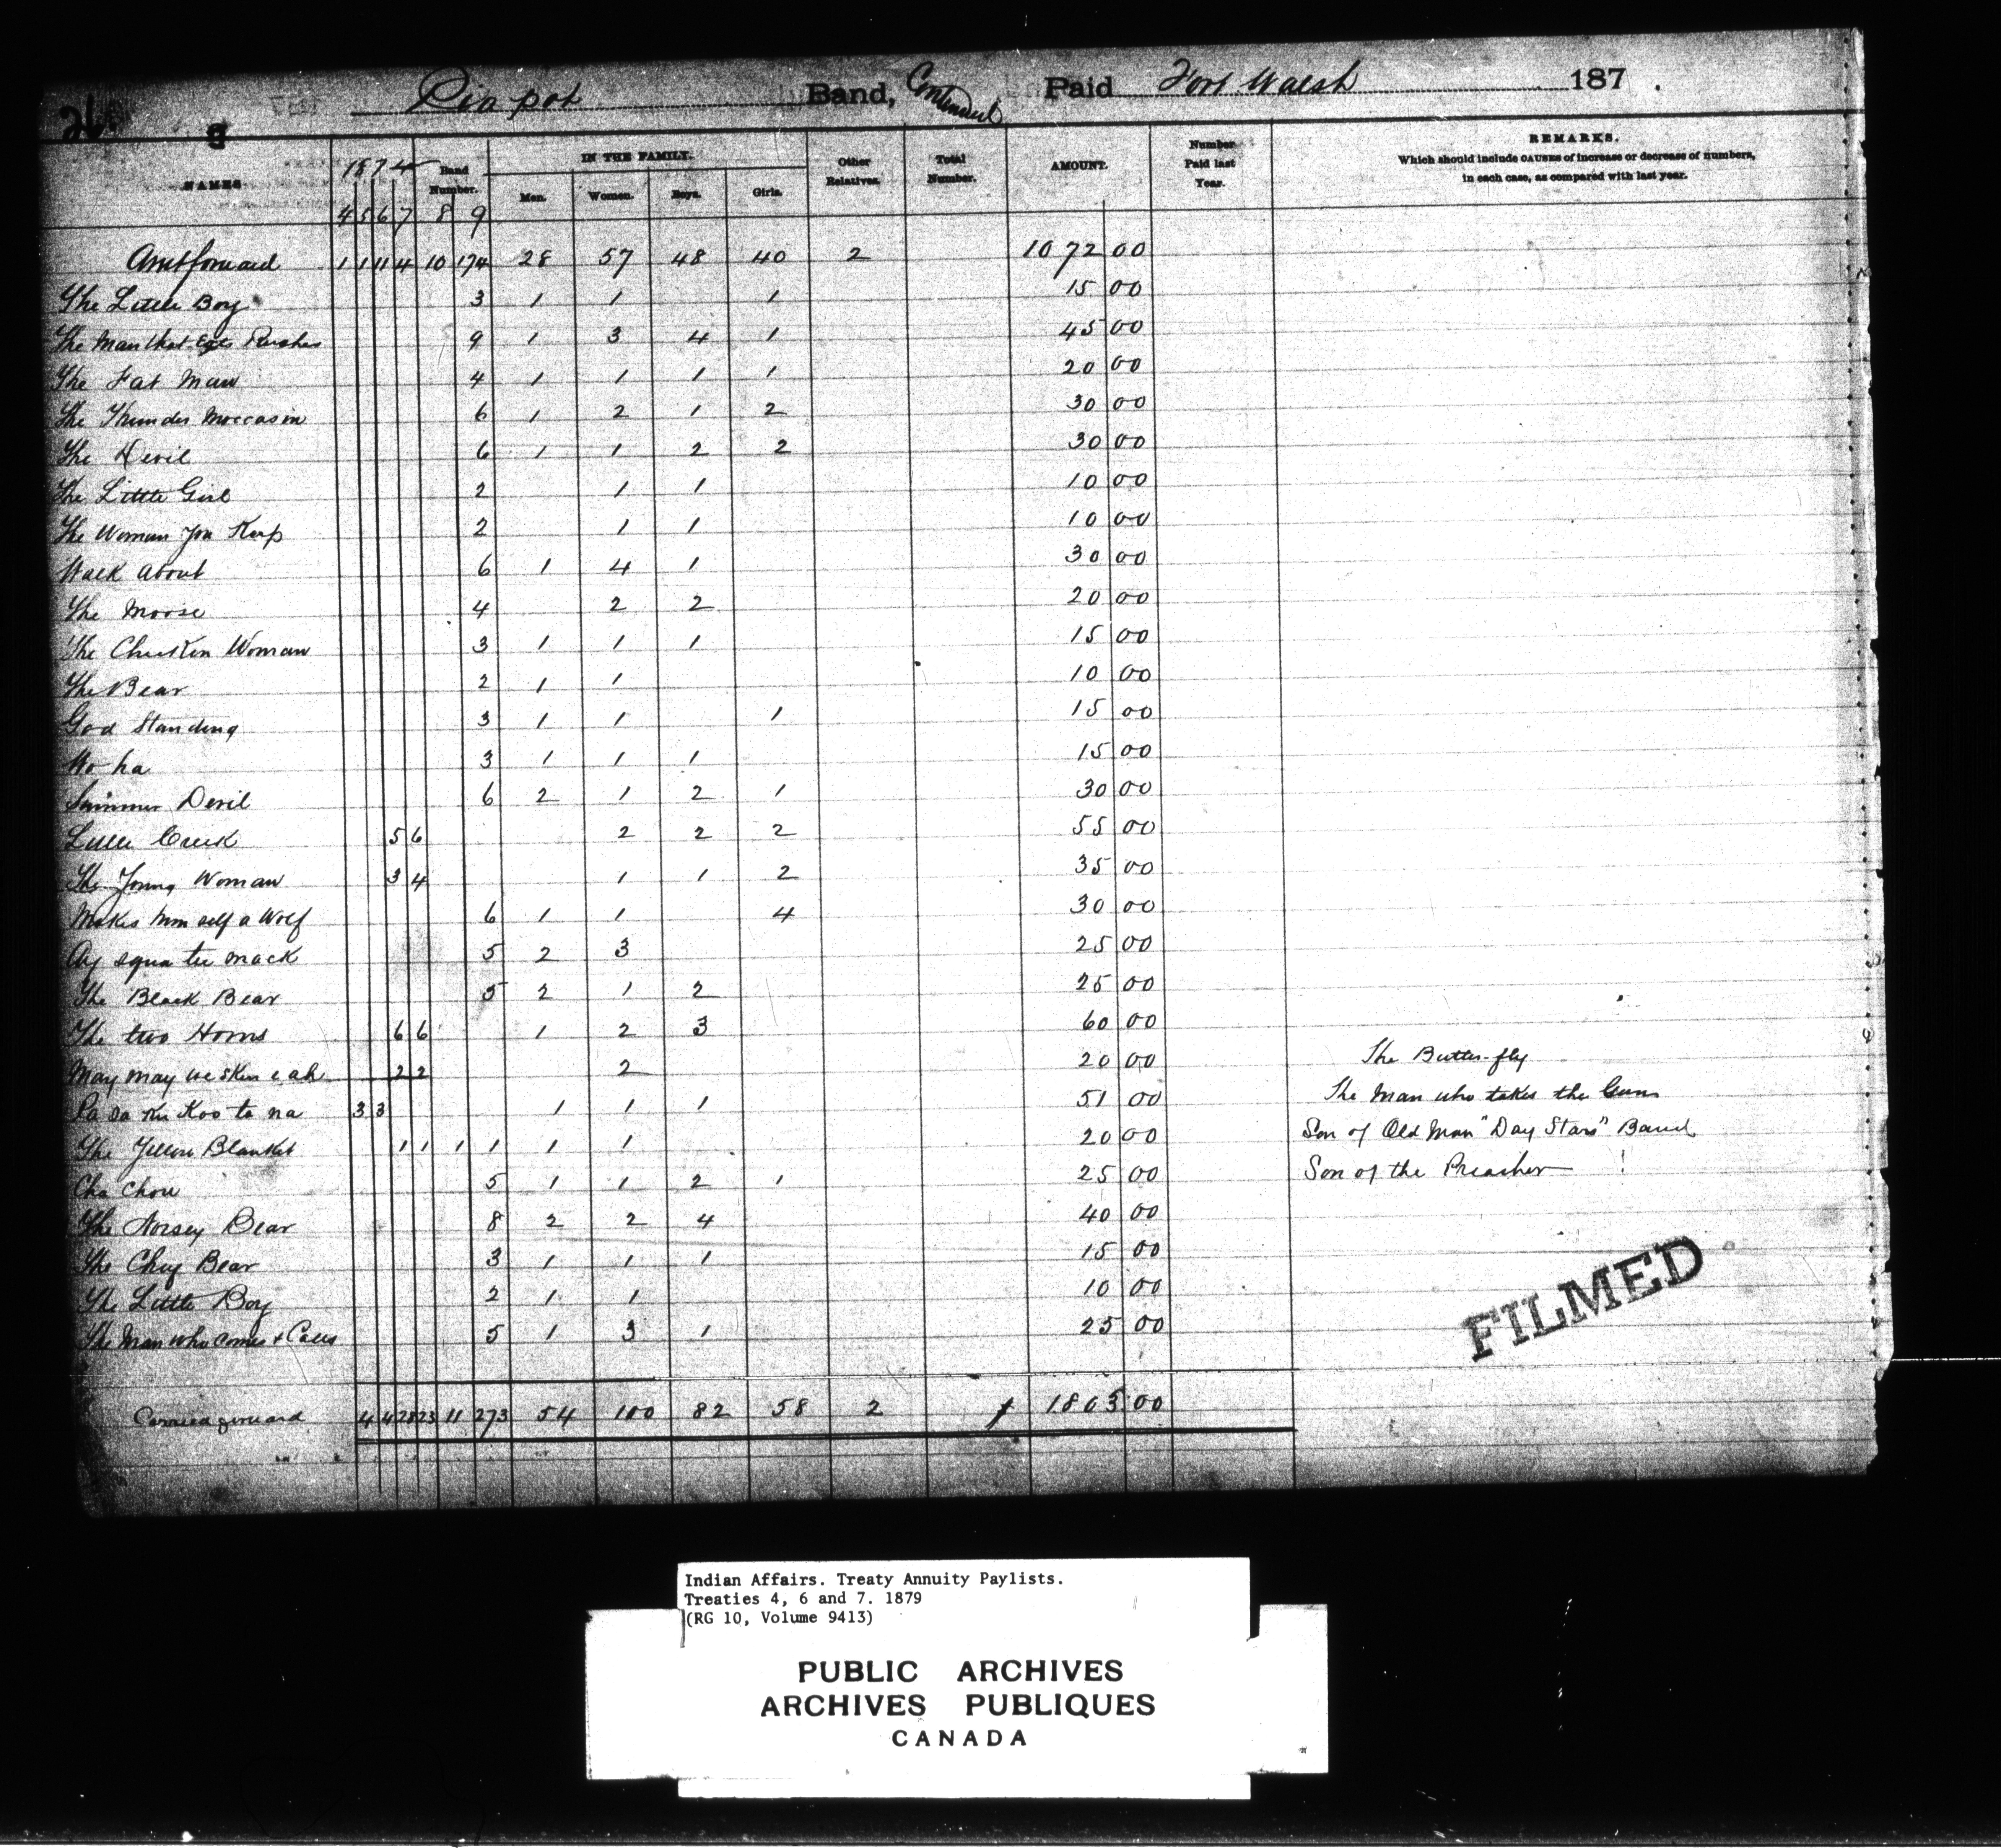 26.
Piapot Band, Continued Paid Fort Walsh 187 .
NAMES 1874 Band Number. IN THE FAMILY. Other Relatives. Total Number. AMOUNT. Number Paid last Year. REMARKS.
Which should include CAUSES of increase or decrease of numbers, in each case, as compared with last year.
Men. Women. Boys. Girls.
4 5 6 7 8 9
Amt forward 1 1 11 4 10 174 28 57 48 40 2 1072 00
The Little Boy 3 1 1 1 15 00
The Man that Eats Rushes 9 1 3 4 1 45 00
The Fat Man 4 1 1 1 1 20 00
The Thunder Moccasin 6 1 2 1 2 30 00
The Devil 6 1 1 2 2 30 00
The Little Girl 2 1 1 10 00
The Woman You Keep 2 1 1 10 00
Walk About 6 1 4 1 30 00
The Moose 4 2 2 20 00
The Chicken Woman 3 1 1 1 15 00
The Bear 2 1 1 10 00
God Standing 3 1 1 1 15 00
Wo ha 3 1 1 1 15 00
Summer Devil 6 2 1 2 1 30 00
Little Creek 5 6 2 2 2 55 00
The Young Woman 3 4 1 1 2 35 00
Makes him self a Wolf 6 1 1 4 30 00
Ay squa tee mack 5 2 3 25 00
The Black Bear 5 2 1 2 25 00
The two Horns 6 6 1 2 3 60 00
May may we skin e ah 2 2 2 20 00 The Butter-fly
Pa sa kee Koo ta na 3 3 1 1 1 51 00 The Man who takes the Guns
The Yellow Blanket 1 1 1 1 1 1 20 00 Son of Old Man "Day Stars" Band
Cha Chou 5 1 1 2 1 25 00 Son of the Preacher
The Noisey Bear 8 2 2 4 40 00
The Chief Bear 3 1 1 1 15 00
The Little Boy 2 1 1 10 00
The Man who comes & Calls 5 1 3 1 25 00
FILMED
Carried forward 4 4 28 23 11 273 54 100 82 58 2 1863 00
Indian Affairs. Treaty Annuity Paylists.
Treaties 4, 6 and 7. 1879
(RG 10, Volume 9413)
PUBLIC ARCHIVES
ARCHIVES PUBLIQUES
CANADA